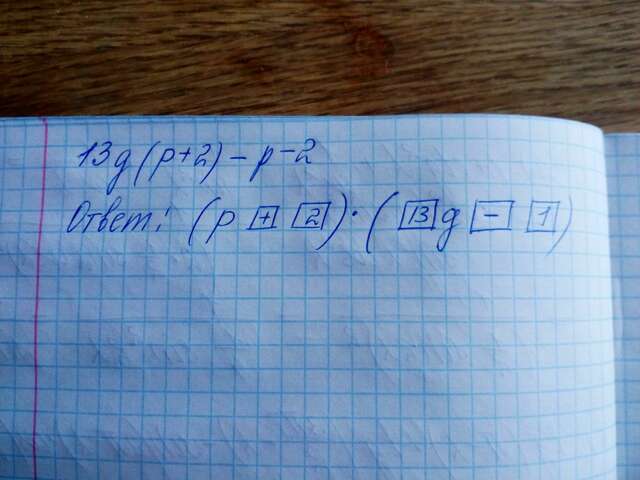 13g(p+2)-p-2
Ответ: (p + 2)·(13g - 1)